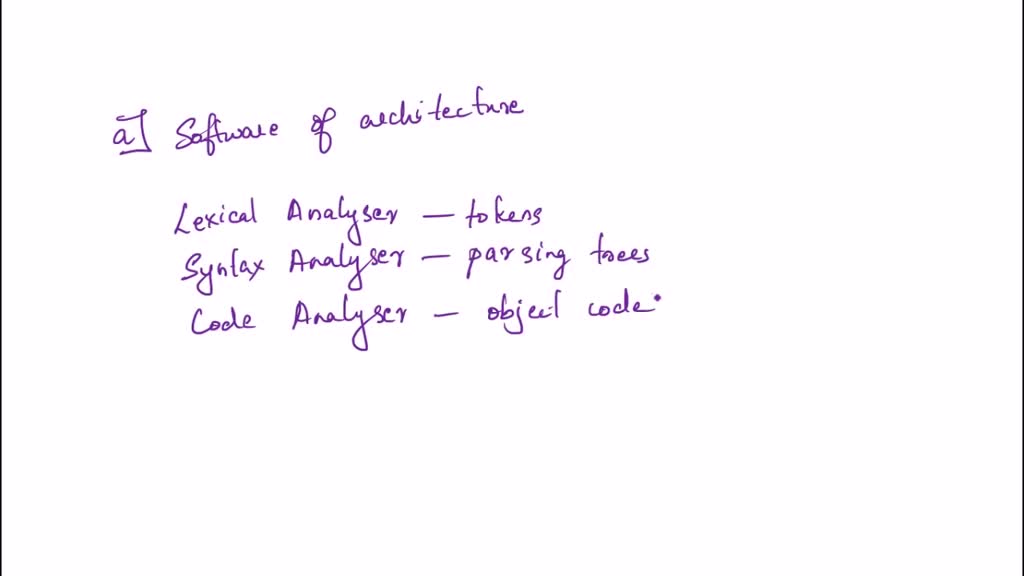 a] Software of architecture
Lexical Analyser — tokens
Syntax Analyser — parsing trees
Code Analyser — object code